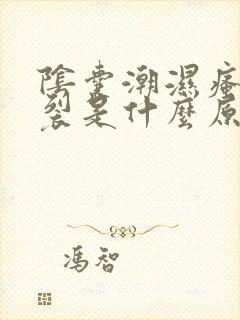 陰囊潮濕瘙
裂是什麼原
馮智